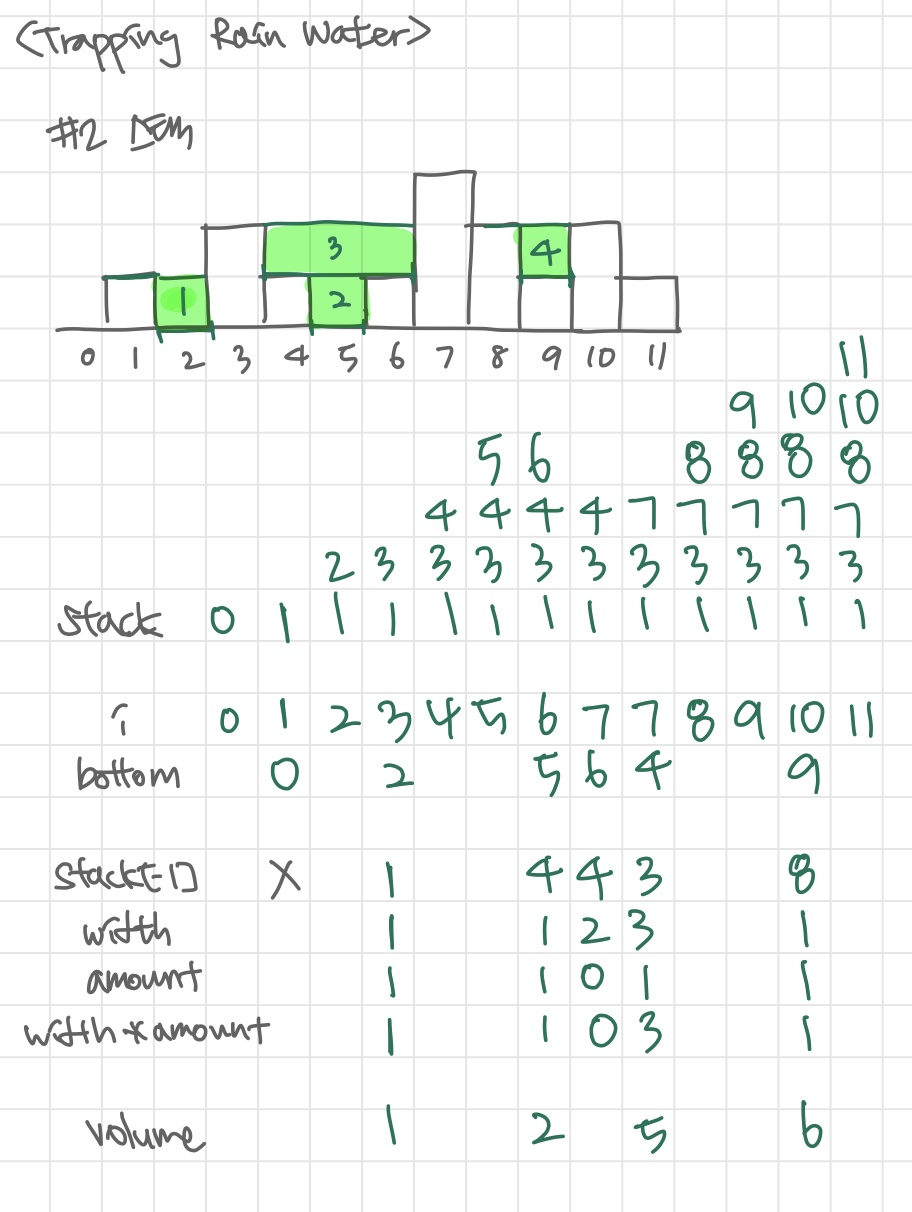 <Trapping Rain Water>
#2
3 4
1 2
0 1 2 3 4 5 6 7 8 9 10 11
11
9 10 10
5 6 8 8 8 8
4 4 4 4 7 7 7 7 7
2 3 3 3 3 3 3 3 3 3 3
stack 0 1 1 1 1 1 1 1 1 1 1 1 1
i 0 1 2 3 4 5 6 7 7 8 9 10 11
bottom 0 2 5 6 4 9
stack[-1] X 1 4 4 3 8
width 1 1 2 3 1
amount 1 1 0 1 1
width*amount 1 1 0 3 1
volume 1 2 5 6